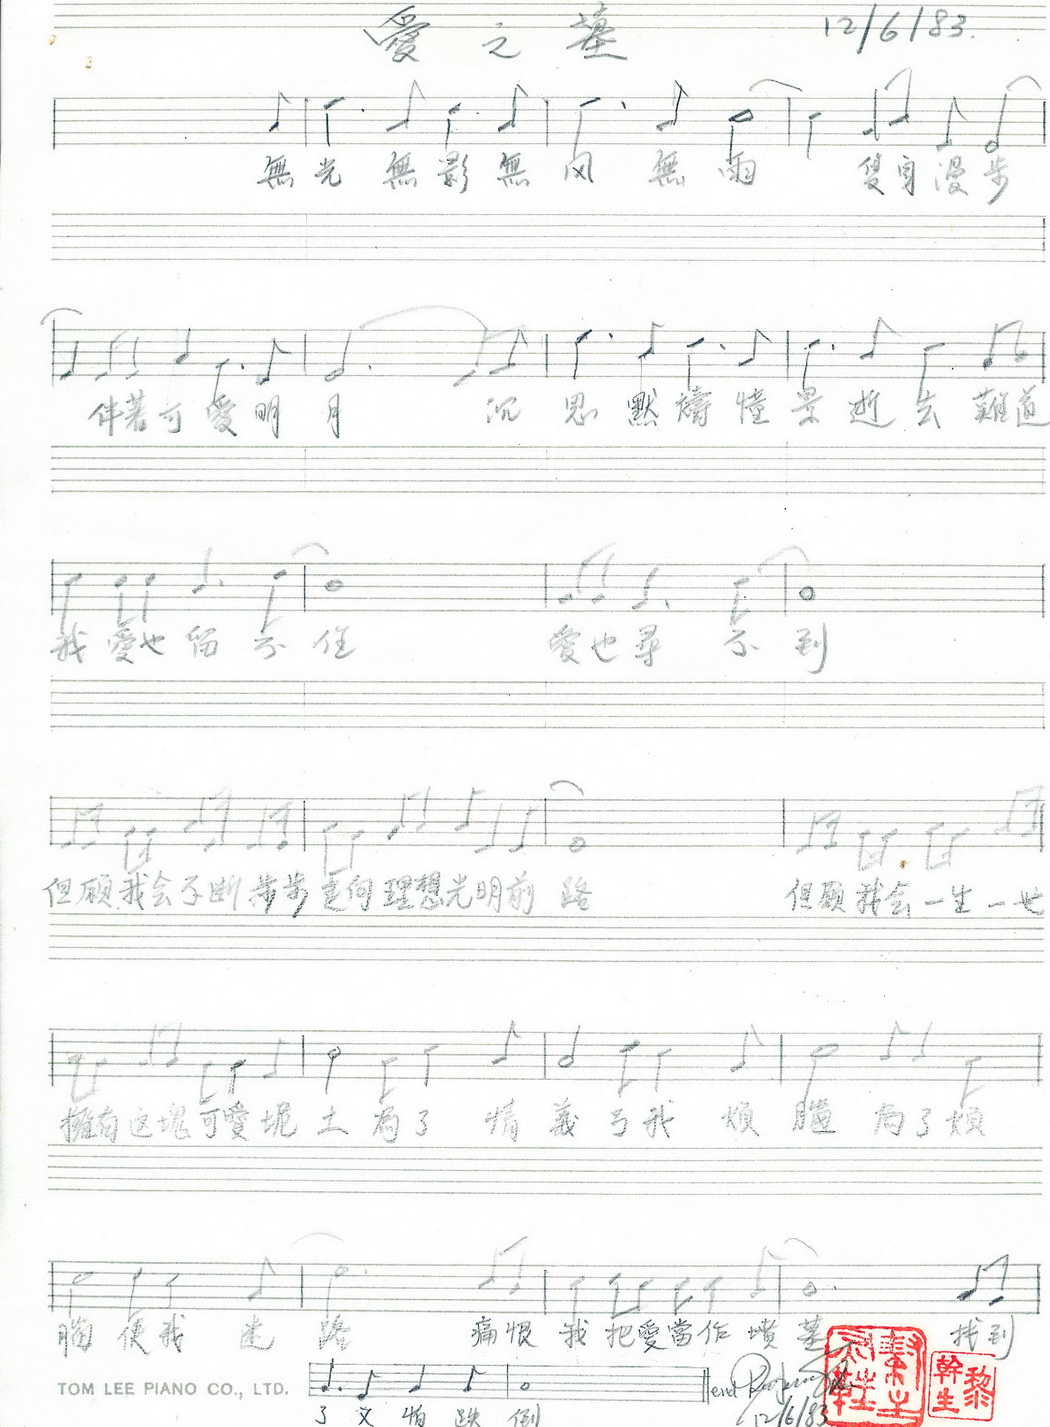 愛之墓 12/6/83.
無光無影無风無雨 隻身漫步
伴著可愛明月 沉思默禱憧景逝去難道
我愛也留不住 愛也尋不到
但願我会不断步步走向理想光明前路 但願我会一生一世
擁有这塊可愛坭土 為了情義令我煩腦 為了煩
腦使我迷路 痛恨我把愛當作墳墓 找到
TOM LEE PIANO CO., LTD. 了又怕跌倒 end
12/6/83
黎幹生